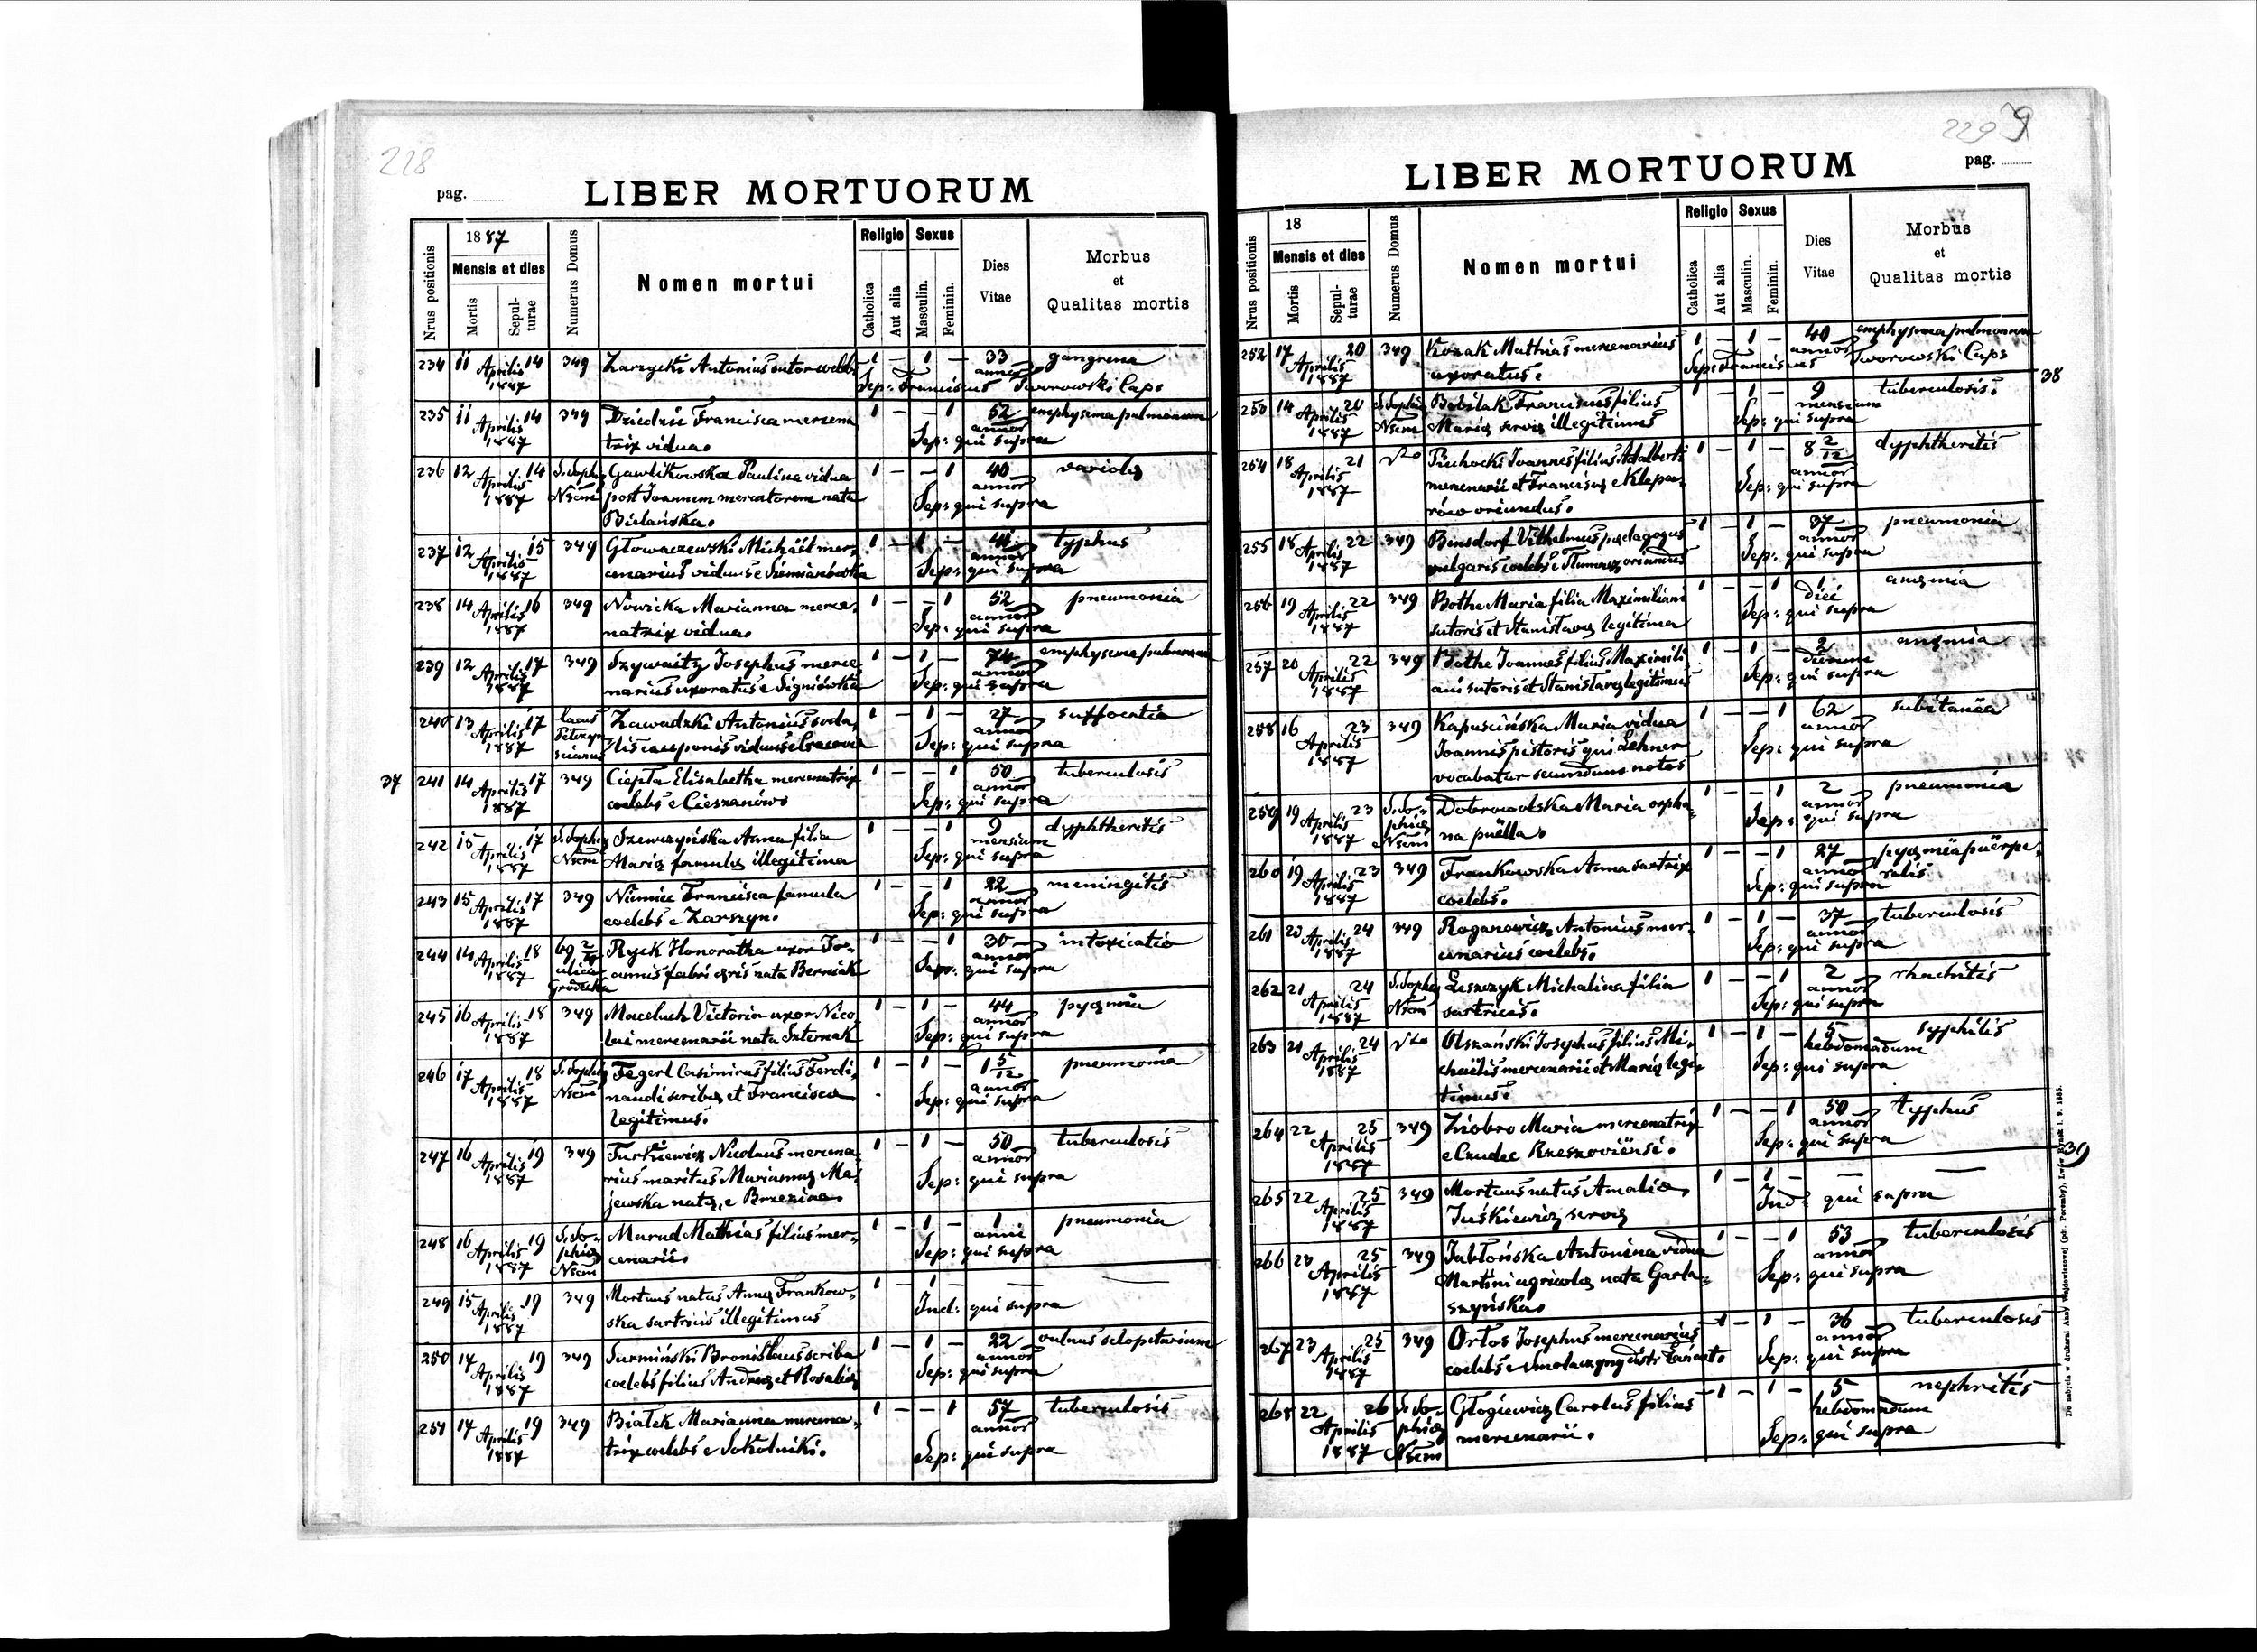 228
pag.
LIBER MORTUORUM
Nrus positionis
1887
Mensis et dies
Mortis
Sepulturae
Numerus Domus
Nomen mortui
Religio
Catholica
Aut alia
Sexus
Masculin.
Feminin.
Dies Vitae
Morbus
et
Qualitas mortis
234 11 14 349 Zarzycki Antonius sutor coelebs 1 – 1 – 33 gangrena
Aprilis 1887 Sep: Franciscus annor Tworowski Caps
235 11 14 349 Dziedzic Francisca mercena 1 – – 1 52 emphysema pulmonum
Aprilis 1887 trix vidua. annor Sep: qui supra
236 12 14 S. Soph. Gawlikowska Paulina vidua 1 – – 1 40 variola
Aprilis 1887 Nsem post Joannem mercatorem nata annor
Bielańska. Sep: qui supra
237 12 15 349 Głowaczewski Michaël mer- 1 – 1 – typhus
Aprilis 1887 cenarius viduus e Siemianówka annor Sep: qui supra
238 14 16 349 Nowicka Marianna merce- 1 – – 1 52 pneumonia
Aprilis 1887 natrix vidua. annor Sep: qui supra
239 12 17 349 Szywaitz Josephus merce 1 – 1 – 74 emphysema pulmonum
Aprilis 1887 narius uxoratus e Signiówka annor Sep: qui supra
240 13 17 lacus Zawadzki Antonius soda- 1 – 1 – 27 suffocatio
Aprilis 1887 lis cauponis viduus e Cracovia annor Sep: qui supra
37
241 14 17 349 Ciepła Elisabetha mercenatrix 1 – – 1 50 tuberculosis
Aprilis 1887 coelebs e Cieszanów annor Sep: qui supra
242 15 17 S. Sophia Szewczyńska Anna filia 1 – – 1 9 dyphtheritis
Aprilis 1887 Nsem Maria famula illegitima mensium Sep: qui supra
243 15 17 349 Niemiec Francisca famula 1 – – 1 22 meningitis
Aprilis 1887 coelebs e Zarszyn. annor Sep: qui supra
244 14 18 69 2/4 Ryck Honoratha uxor Jo- 1 – – 1 30 intoxicatio
Aprilis 1887 ulica Gródecka annis fabri æris nata Berniak annor Sep: qui supra
245 16 18 349 Maceluch Victoria uxor Nico 1 – 1 – 44 pyæmia
Aprilis 1887 lai mercenarii nata Szternak annor Sep: qui supra
246 17 18 S. Sophia Fegert Casimirus filius Ferdi- 1 – 1 – 1 5/12 pneumonia
Aprilis 1887 Nsem nandi scriba et Francisca annor
legitimus. Sep: qui supra
247 16 19 349 Turkiewicz Nicolaus mercena 1 – 1 – 50 tuberculosis
Aprilis 1887 rius maritus Marianna Ma- annor
jewska nata, e Brzezina. Sep: qui supra
248 16 19 S. So- Marud Mathias filius mer- 1 – 1 – 1 pneumonia
Aprilis 1887 phia Nsem cenarii. anni Sep: qui supra
249 15 19 349 Mortuus natus Anna Frankow- 1 – 1 – — —
Aprilis 1887 ska sartricis illegitimus Ind: qui supra
250 17 19 349 Surmiński Bronislaus scriba 1 – 1 – 22 vulnus sclopetarium
Aprilis 1887 coelebs filius Andrea et Rosalia annor Sep: qui supra
251 17 19 349 Białek Marianna mercena- 1 – – 1 57 tuberculosis
Aprilis 1887 trix coelebs e Sokolniki. annor Sep: qui supra
229
9
pag.
LIBER MORTUORUM
Nrus positionis
18
Mensis et dies
Mortis
Sepulturae
Numerus Domus
Nomen mortui
Religio
Catholica
Aut alia
Sexus
Masculin.
Feminin.
Dies Vitae
Morbus
et
Qualitas mortis
252 17 20 349 Kozak Mathias mercenarius 1 – 1 – 40 emphysema pulmonum
Aprilis 1887 uxoratus. Sep: Franciscus annor Tworowski Caps
38
253 14 20 S. Sophia Bobilak Franciscus filius 1 – 1 – 9 tuberculosis.
Aprilis 1887 Nsem Maria serva illegitimus mensium Sep: qui supra
254 18 21 Piechocki Joannes filius Adalberti 1 – 1 – 8 2/12 dyphtheritis
Aprilis 1887 mercenarii et Francisca e Klepa- annor
rów oriundus. Sep: qui supra
255 18 22 349 Binsdorf Vilhelmus pædagogus 1 – 1 – 37 pneumonia
Aprilis 1887 vulgaris coelebs e Tłumacz oriundus annor Sep: qui supra
256 19 22 349 Bothe Maria filia Maximiliani 1 – – 1 1 anæmia
Aprilis 1887 sutoris et Stanislava legitima diei Sep: qui supra
257 20 22 349 Bothe Joannes filius Maximili 1 – 1 – 2 anæmia
Aprilis 1887 ani sutoris et Stanislava legitimus dierum Sep: qui supra
258 16 23 349 Kapuscińska Maria vidua 1 – – 1 62 subitanëa
Aprilis 1887 Joannis pistoris qui Lehner annor
vocabatur secundum notas Sep: qui supra
259 19 23 S. So- Dobrowolska Maria orpha- 1 – – 1 2 pneumonia
Aprilis 1887 phia Nsem na puëlla. annor Sep: qui supra
260 19 23 349 Frankowska Anna sartrix 1 – – 1 27 pyæmia püerpe-
Aprilis 1887 coelebs. annor ralis Sep: qui supra
261 20 24 349 Roganowicz Antonius mer- 1 – 1 – 37 tuberculosis
Aprilis 1887 cenarius coelebs. annor Sep: qui supra
262 21 24 S. Sophia Leszczyk Michalina filia 1 – – 1 2 rhachitis
Aprilis 1887 Nsem sartricis. annor Sep: qui supra
263 21 24 Olszański Josephus filius Mi- 1 – 1 – 5 syphilis
Aprilis 1887 chaëlis mercenarii et Maria legi- hebdomadum
timus. Sep: qui supra
264 22 25 349 Ziobro Maria mercenatrix 1 – – 1 50 typhus
Aprilis 1887 e Czudec Rzeszoviënsi. annor Sep: qui supra
39
265 22 25 349 Mortuus natus Amalia 1 – 1 – — —
Aprilis 1887 Juśkiewicz serva Ind: qui supra
266 23 25 349 Jabłońska Antonina vidua 1 – – 1 53 tuberculosis
Aprilis 1887 Martini agricola nata Garla- annor
szyńska. Sep: qui supra
267 23 25 349 Ortos Josephus mercenarius 1 – 1 – 36 tuberculosis
Aprilis 1887 coelebs e Smolarzyny distr Łańcut. annor Sep: qui supra
268 22 26 S. So- Głogiewicz Carolus filius 1 – 1 – 5 nephritis
Aprilis 1887 phia Nsem mercenarii. hebdomadum Sep: qui supra